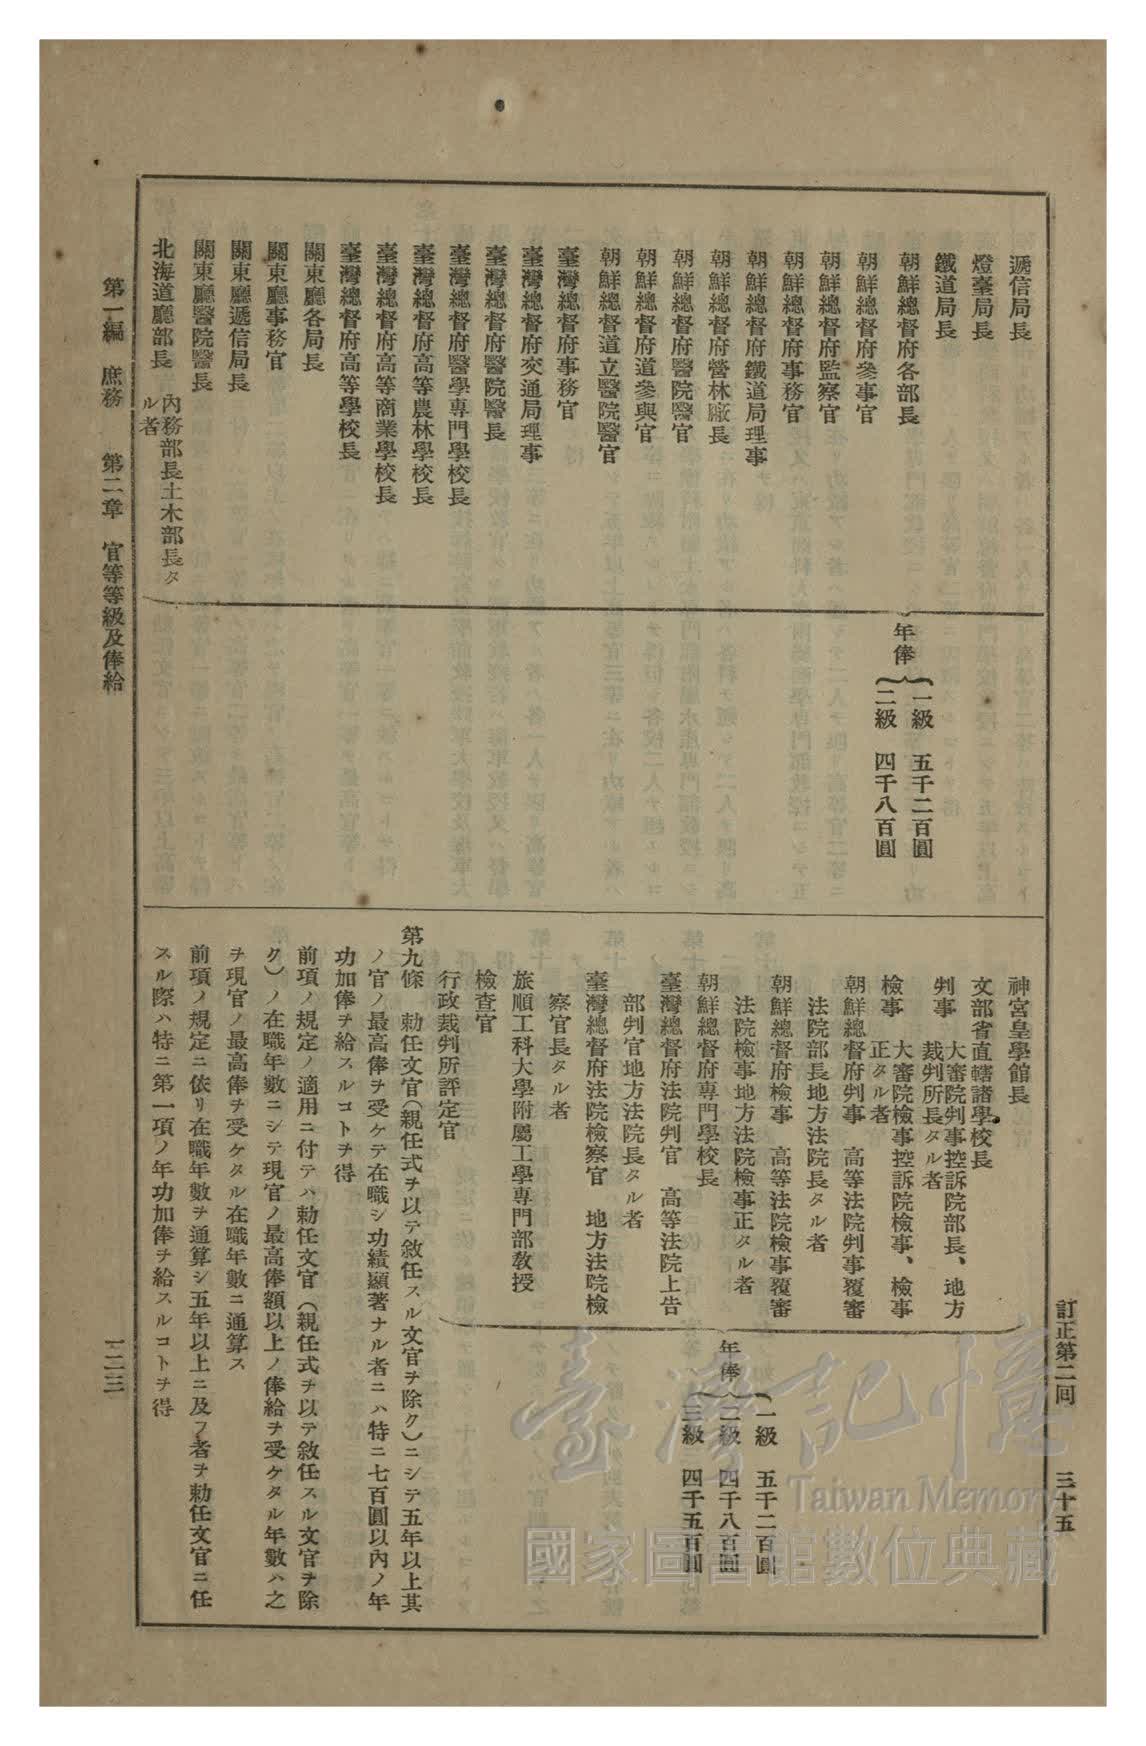 訂正第二回　三十五
遞信局長
燈臺局長
鐵道局長
朝鮮總督府各部長
朝鮮總督府參事官
朝鮮總督府監察官
朝鮮總督府事務官
朝鮮總督府鐵道局理事
朝鮮總督府營林廠長
朝鮮總督府醫院醫官
朝鮮總督府道參與官
朝鮮總督府道立醫院醫官
臺灣總督府事務官
臺灣總督府交通局理事
臺灣總督府醫院醫長
臺灣總督府醫學專門學校長
臺灣總督府高等農林學校長
臺灣總督府高等商業學校長
臺灣總督府高等學校長
關東廳各局長
關東廳事務官
關東廳遞信局長
關東廳醫院醫長
北海道廳部長　內務部長土木部長タ
ル者
年俸
一級　五千二百圓
二級　四千八百圓
神宮皇學館長
文部省直轄諸學校長
判事　大審院判事控訴院部長、地方
裁判所長タル者
檢事　大審院檢事控訴院檢事、檢事
正タル者
朝鮮總督府判事　高等法院判事覆審
法院部長地方法院長タル者
朝鮮總督府檢事　高等法院檢事覆審
法院檢事地方法院檢事正タル者
朝鮮總督府專門學校長
臺灣總督府法院判官　高等法院上告
部判官地方法院長タル者
臺灣總督府法院檢察官　地方法院檢
察官長タル者
旅順工科大學附屬工學專門部敎授
檢査官
行政裁判所評定官
年俸
一級　五千二百圓
二級　四千八百圓
三級　四千五百圓
第九條　勅任文官（親任式ヲ以テ敘任スル文官ヲ除ク）ニシテ五年以上其
ノ官ノ最高俸ヲ受ケテ在職シ功績顯著ナル者ニハ特ニ七百圓以內ノ年
功加俸ヲ給スルコトヲ得
前項ノ規定ノ適用ニ付テハ勅任文官（親任式ヲ以テ敘任スル文官ヲ除
ク）ノ在職年數ニシテ現官ノ最高俸額以上ノ俸給ヲ受ケタル年數ハ之
ヲ現官ノ最高俸ヲ受ケタル在職年數ニ通算ス
前項ノ規定ニ依リ在職年數ヲ通算シ五年以上ニ及フ者ヲ勅任文官ニ任
スル際ハ特ニ第一項ノ年功加俸ヲ給スルコトヲ得
第一編　庶務　第二章　官等等級及俸給
一二三
臺灣記憶
Taiwan Memory
國家圖書館數位典藏